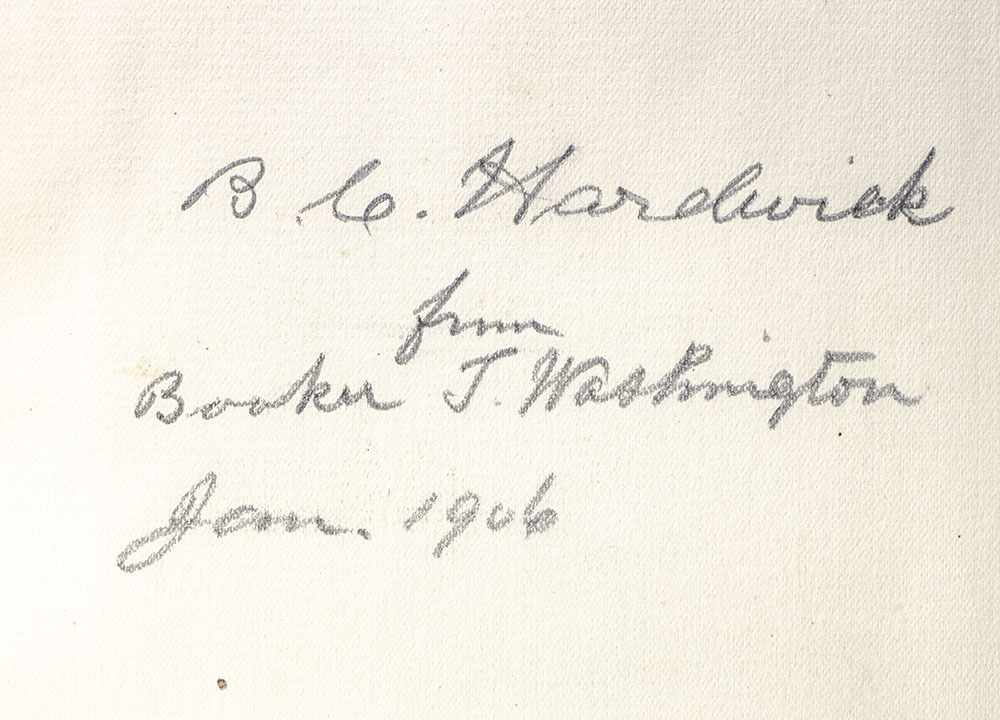 B. C. Hardwick
from
Booker T. Washington
Jan. 1906